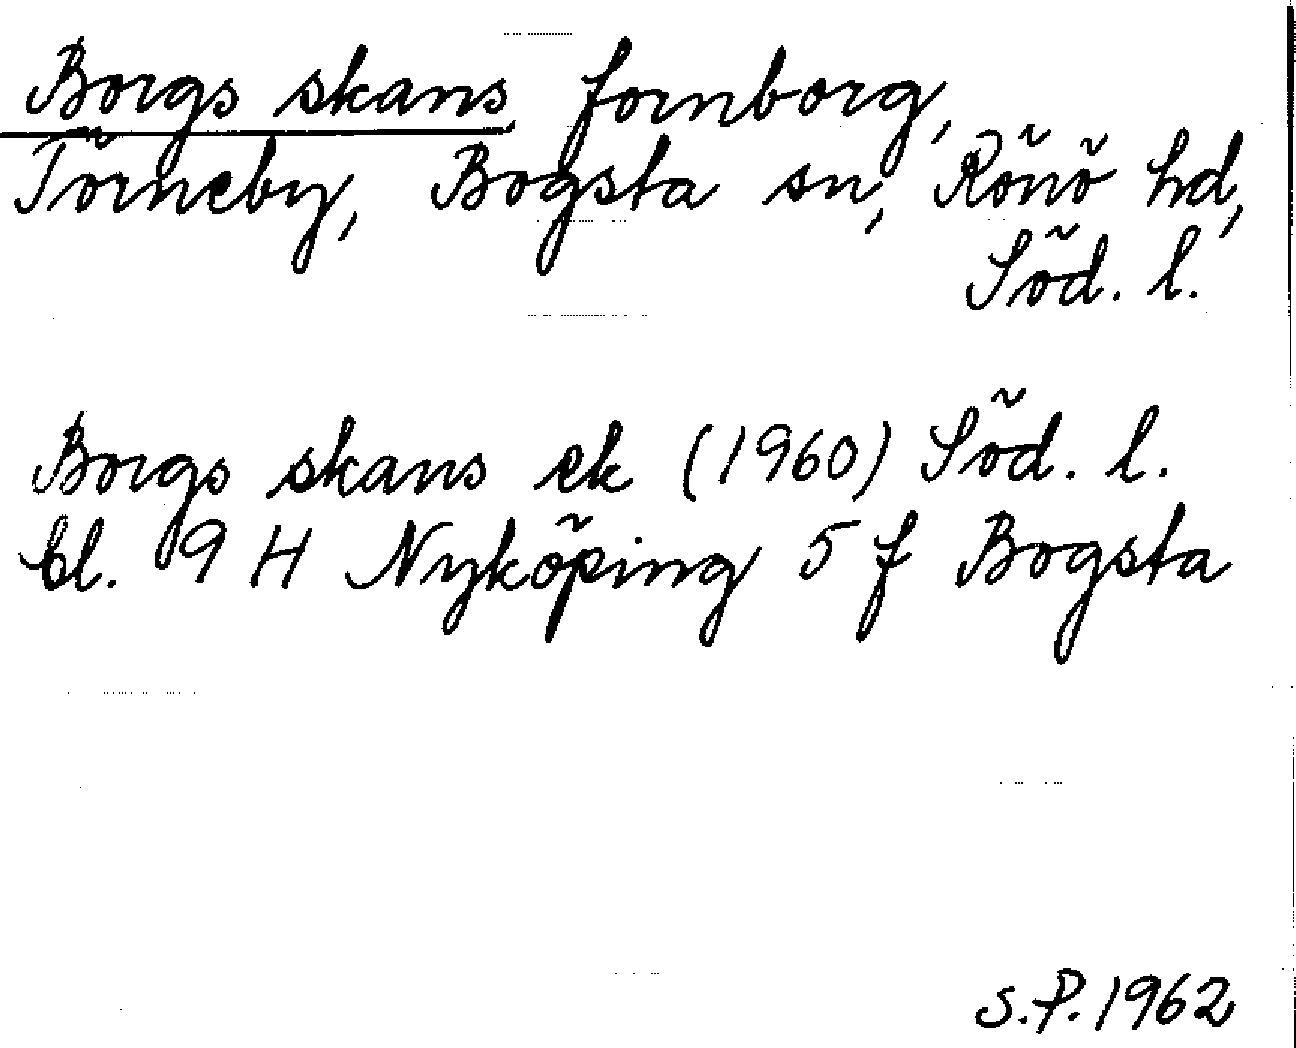 Borgs skans, fornborg,
Törneby, Bogsta sn, Rönö hd,
Söd. l.
Borgs skans ek (1960) Söd. l.
bl. 9 H Nyköping 5 f Bogsta
S.P. 1962